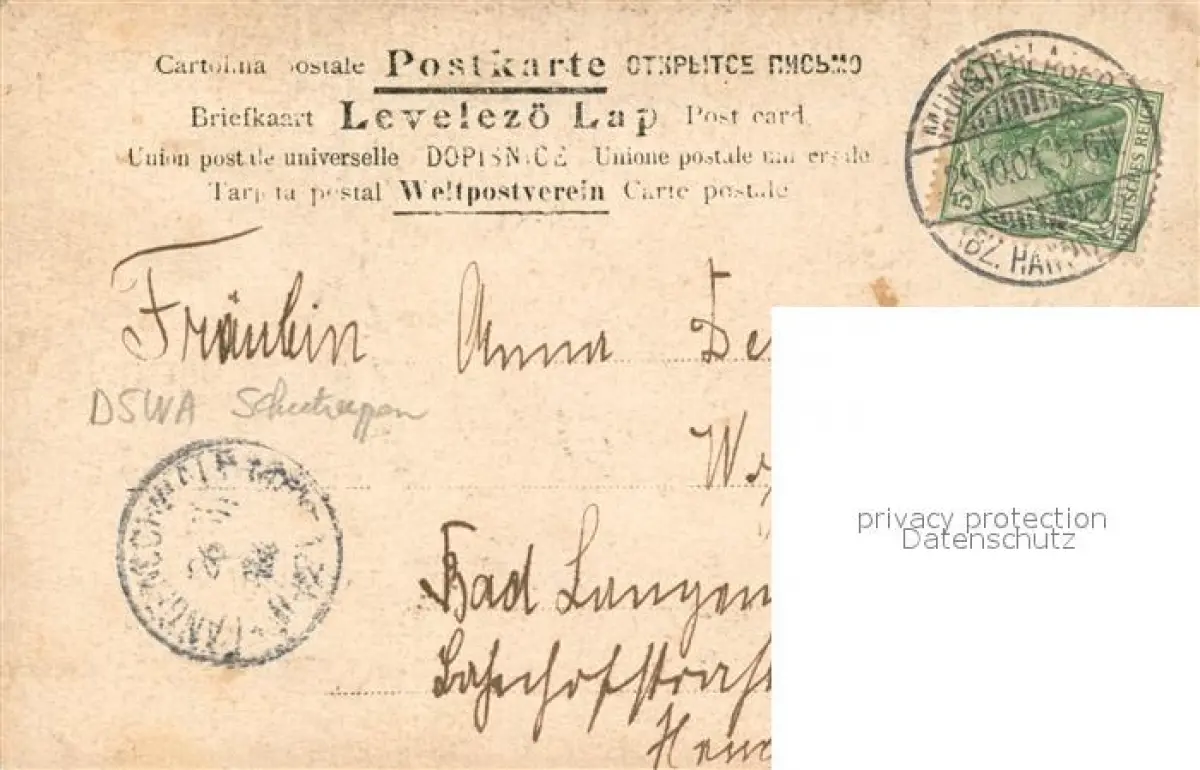 Cartolina postale Postkarte ОТКРЫТОЕ ПИСЬМО
Briefkaart Levelezö Lap Post card.
Union postale universelle DOPISNICE Unione postale universale
Tarjeta postal Weltpostverein Carte postale
MÜNSTERLAGER
10.04
BZ. HAN
DEUTSCHES REICH
Fräulein Anna De
DSWA
LANGENSCHWALBACH
26
Bad Langen
Bahnhofstraß
privacy protection
Datenschutz